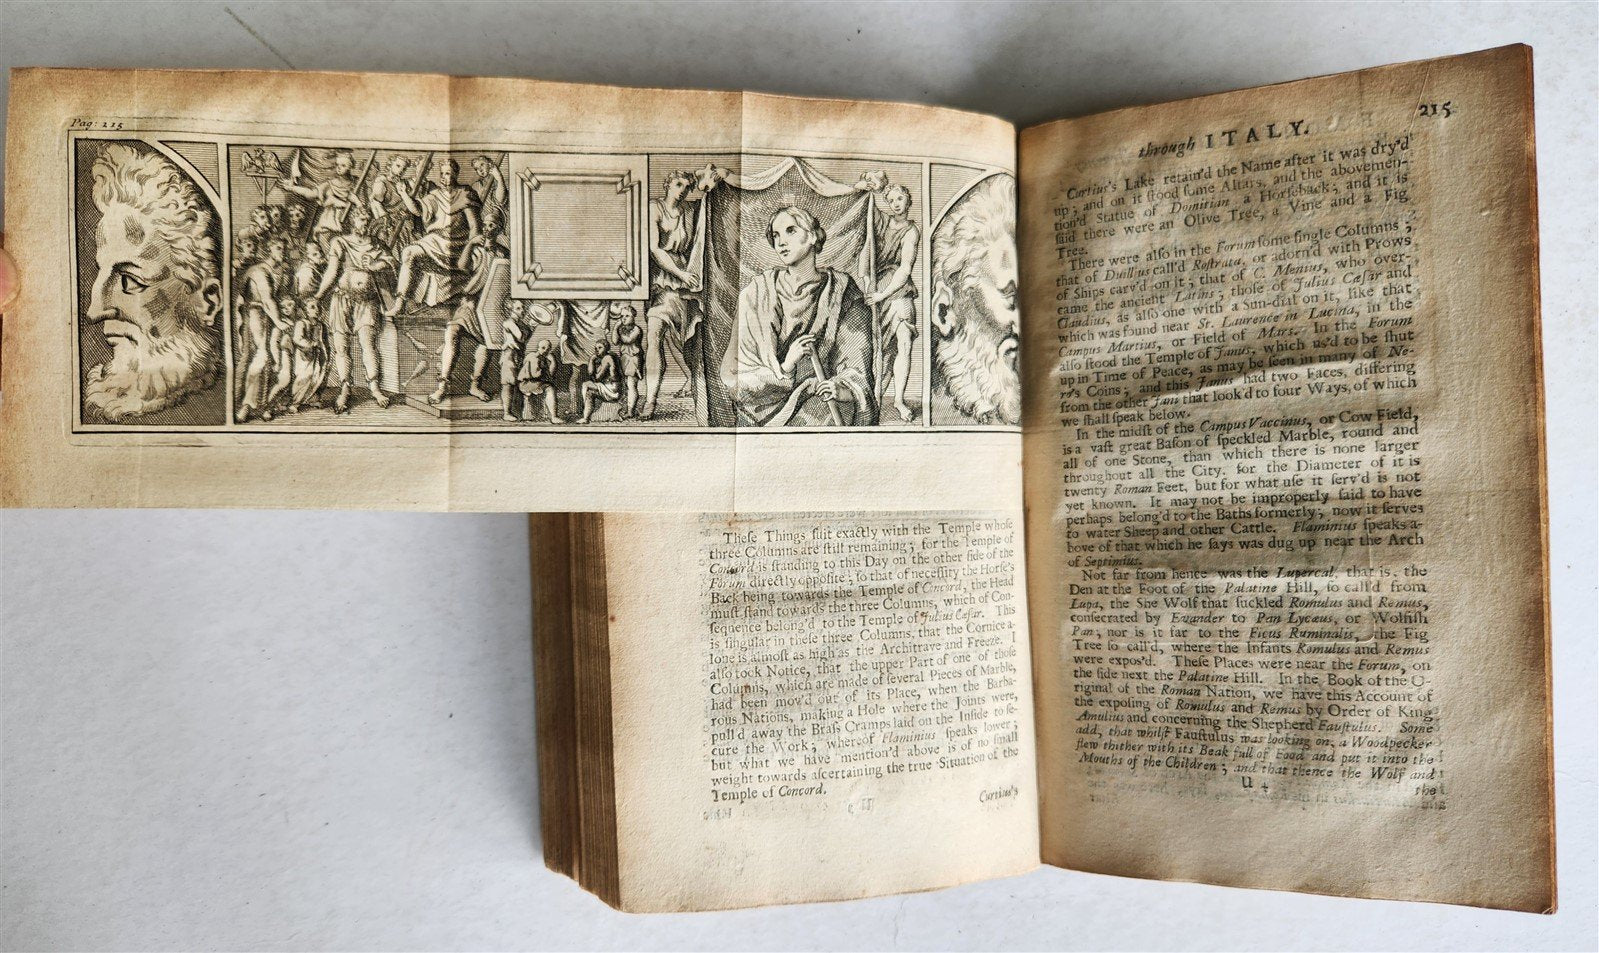 Pag: 215
These Things suit exactly with the Temple whose
three Columns are still remaining; for the Temple of
Concord is standing to this Day on the other side of the
Forum directly opposite; so that of necessity the Horse's
Back being towards the Temple of Concord, the Head
must stand towards the three Columns, which of Con-
sequence belong'd to the Temple of Julius Cæsar. This
is singular in these three Columns, that the Cornice a-
lone is almost as high as the Architrave and Freeze. I
also took Notice, that the upper Part of one of those
Columns, which are made of several Pieces of Marble,
had been mov'd out of its Place, when the Barba-
rous Nations, making a Hole where the Joints were,
pull'd away the Brass Cramps laid on the Inside to se-
cure the Work; whereof Flaminius speaks lower;
but what we have mention'd above is of no small
weight towards ascertaining the true Situation of the
Temple of Concord.
Curtius's
through ITALY.
215
Curtius's Lake retain'd the Name after it was dry'd
up; and on it stood some Altars, and the abovemen-
tion'd Statue of Domitian a Horseback; and it is
said there were an Olive Tree, a Vine and a Fig
Tree.
There were also in the Forum some single Columns;
that of Duillius call'd Rostrata, or adorn'd with Prows
of Ships carv'd on it; that of C. Menius, who over-
came the ancient Latins; those of Julius Cæsar and
Claudius, as also one with a Sun-dial on it, like that
which was found near St. Laurence in Lucina, in the
Campus Martius, or Field of Mars. In the Forum
also stood the Temple of Janus, which us'd to be shut
up in Time of Peace, as may be seen in many of Ne-
ro's Coins; and this Janus had two Faces, differing
from the other Jani that look'd to four Ways, of which
we shall speak below.
In the midst of the Campus Vaccinus, or Cow Field,
is a vast great Bason of speckled Marble, round and
all of one Stone, than which there is none larger
throughout all the City, for the Diameter of it is
twenty Roman Feet, but for what use it serv'd is not
yet known. It may not be improperly said to have
perhaps belong'd to the Baths formerly; now it serves
to water Sheep and other Cattle. Flaminius speaks a-
bove of that which he says was dug up near the Arch
of Septimius.
Not far from hence was the Lupercal, that is, the
Den at the Foot of the Palatine Hill, so call'd from
Lupa, the She Wolf that suckled Romulus and Remus,
consecrated by Evander to Pan Lycæus, or Wolfish
Pan; nor is it far to the Ficus Ruminalis, the Fig
Tree so call'd, where the Infants Romulus and Remus
were expos'd. These Places were near the Forum, on
the side next the Palatine Hill. In the Book of the O-
riginal of the Roman Nation, we have this Account of
the exposing of Romulus and Remus by Order of King
Amulius and concerning the Shepherd Faustulus. Some
add, that whilst Faustulus was looking on, a Woodpecker
flew thither with its Beak full of Food and put it into the
Mouths of the Children; and that thence the Wolf and
U 4
the